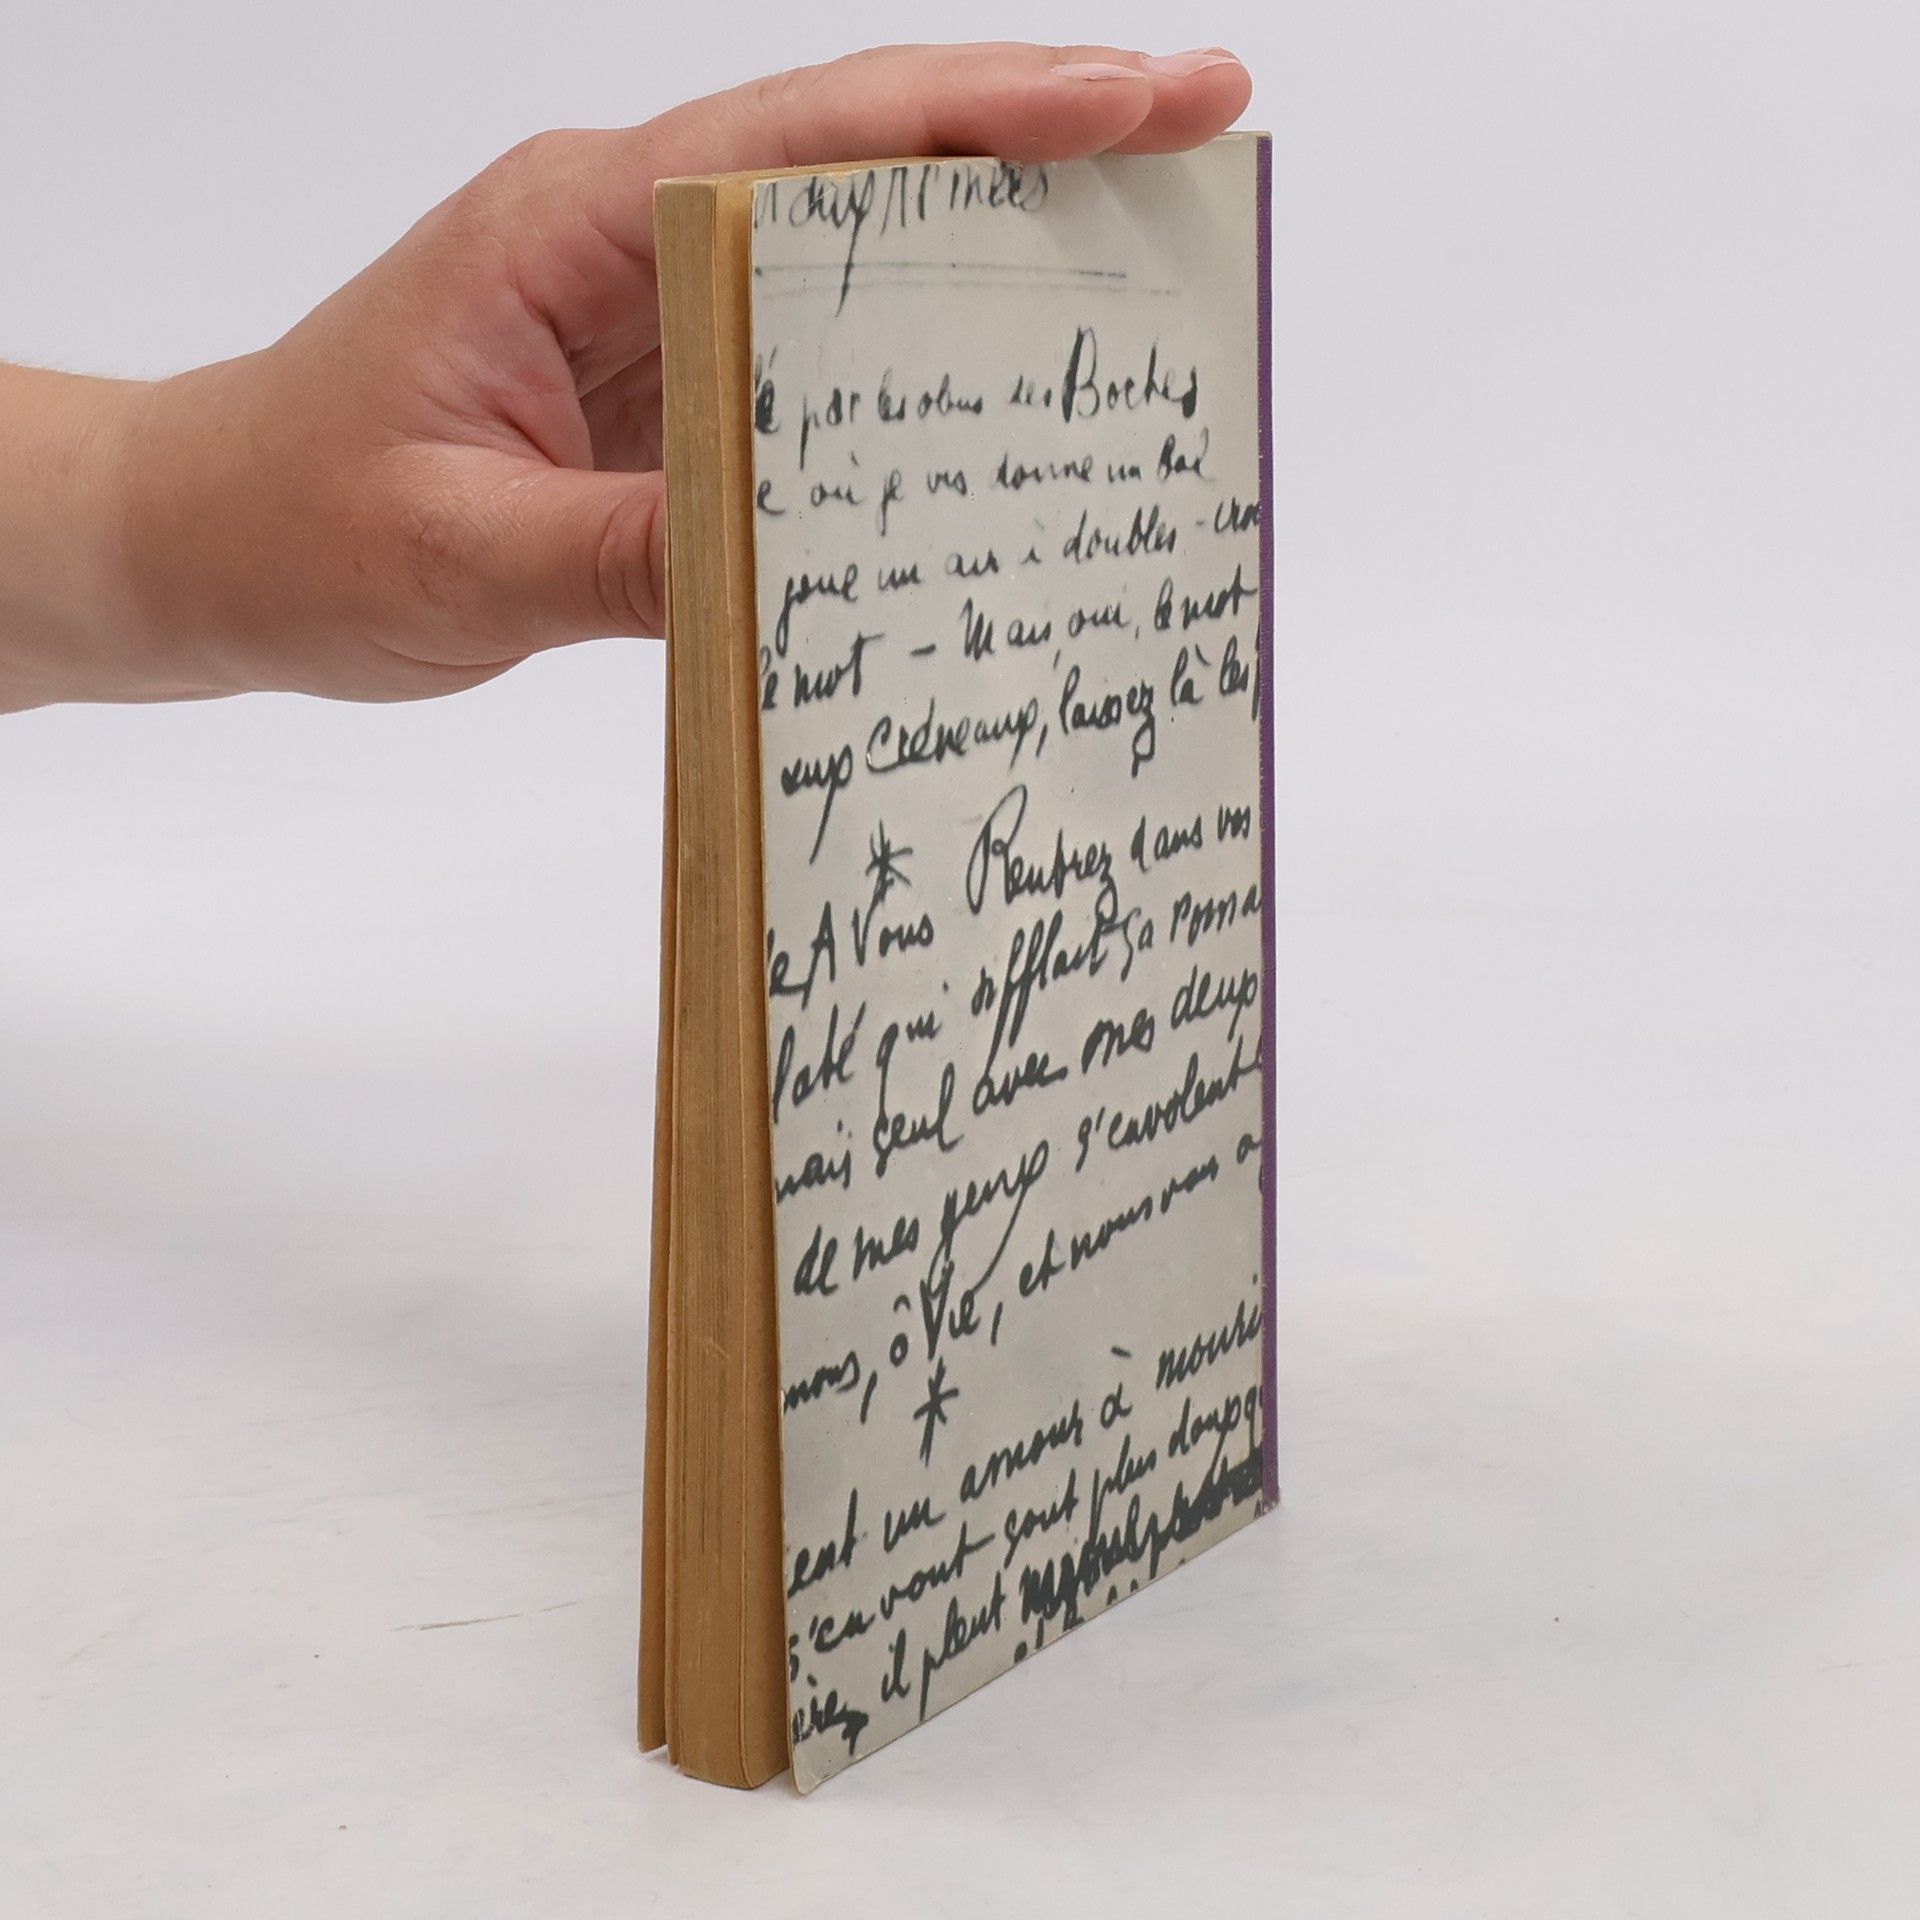 aux Armées
é par les obus des Boches
e où je vis donne un Bal
joue un air à doubles-croc
le mot – Mais oui, le mot
aux Créneaux, laissez là les
*
e A Vous Rentrez dans vos
laté qui sifflait sa roma
mais seul avec mes deux
de mes yeux s'envolent
nous, ô Vie, et nous vous a
*
ent un amour à mouri
s'en vont sont plus doux q
ère, il pleut